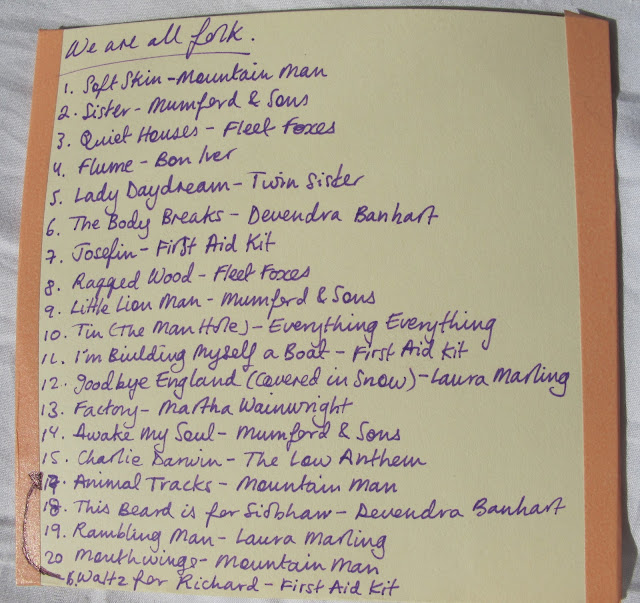 We are all folk.
1. Soft Skin - Mountain Man
2. Sister - Mumford & Sons
3. Quiet Houses - Fleet Foxes
4. Flume - Bon Iver
5. Lady Daydream - Twin Sister
6. The Body Breaks - Devendra Banhart
7. Josefin - First Aid Kit
8. Ragged Wood - Fleet Foxes
9. Little Lion Man - Mumford & Sons
10. Tin (The Man Hole) - Everything Everything
11. I'm Building Myself a Boat - First Aid Kit
12. Goodbye England (Covered in Snow) - Laura Marling
13. Factory - Martha Wainwright
14. Awake My Soul - Mumford & Sons
15. Charlie Darwin - The Low Anthem
17. Animal Tracks - Mountain Man
18. This Beard is for Siobhan - Devendra Banhart
19. Rambling Man - Laura Marling
20 Mouthwings - Mountain Man
16. Waltz for Richard - First Aid Kit